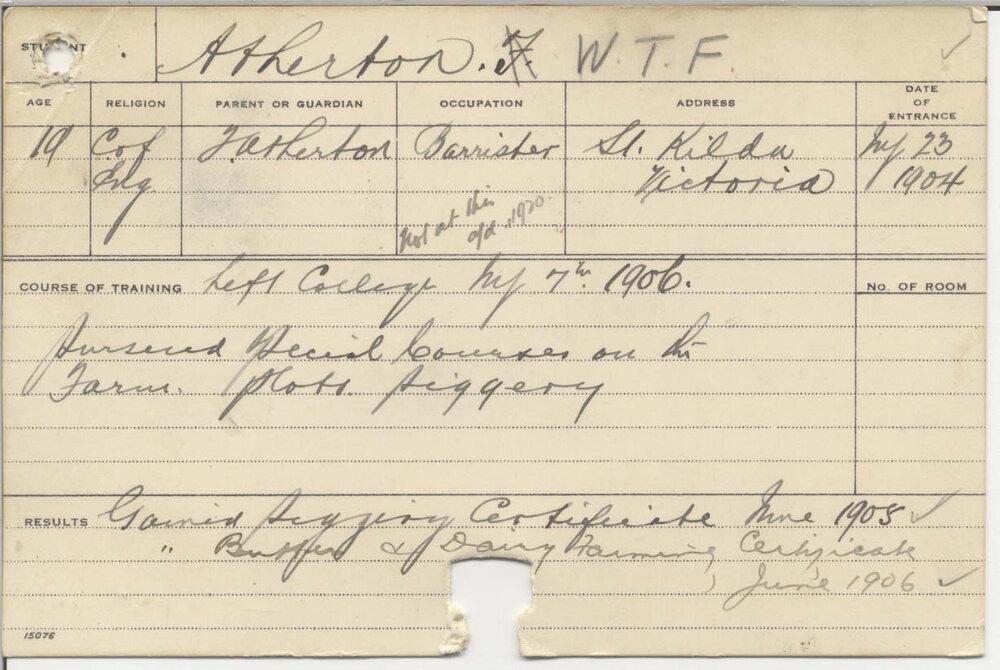 STUDENT Atherton. F. W.T.F.
AGE RELIGION PARENT OR GUARDIAN OCCUPATION ADDRESS DATE OF ENTRANCE
19 C of Eng F. Atherton Barrister St. Kilda Victoria July 23 1904
Not at this a/d 1920.
COURSE OF TRAINING Left College July 7th 1906.
No. OF ROOM
Pursued Special Courses on the
Farm. Plots. Piggery
RESULTS Gained Piggery Certificate June 1905 ✓
" Butter & Dairy Farming Certificate
June 1906 ✓
15076